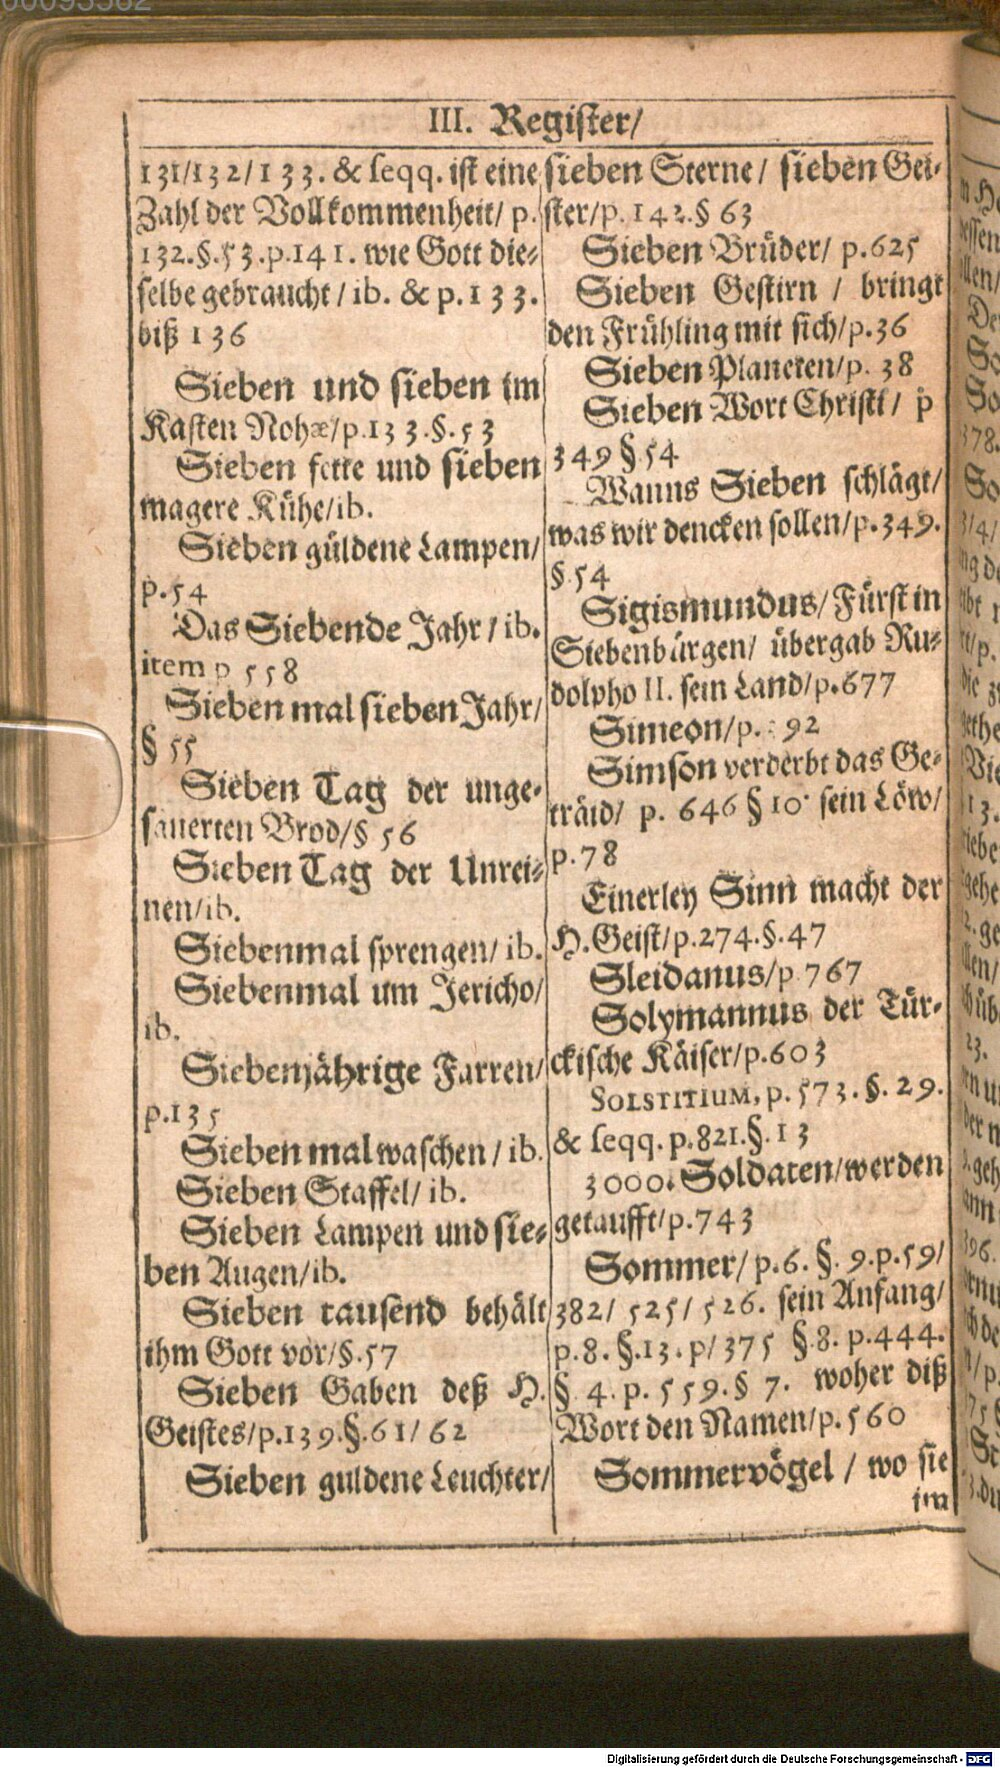 III. Register/
131/132/133. & ſeqq. iſt eine
Zahl der Vollkommenheit/ p.
132.§.53.p.141. wie Gott die-
ſelbe gebraucht/ ib. & p. 133.
biß 136
Sieben und ſieben im
Kaſten Nohæ/p.133.§.53
Sieben fette und ſieben
magere Kühe/ib.
Sieben güldene Lampen/
p.54
Das Siebende Jahr/ ib.
item p 558
Sieben mal ſieben Jahr/
§ 55
Sieben Tag der unge-
ſauerten Brod/§ 56
Sieben Tag der Unrei-
nen/ib.
Siebenmal ſprengen/ ib.
Siebenmal um Jericho/
ib.
Siebenjährige Farren/
p.135
Sieben mal waſchen/ ib.
Sieben Staffel/ ib.
Sieben Lampen und ſie-
ben Augen/ib.
Sieben tauſend behält
ihm Gott vor/§.57
Sieben Gaben deß H.
Geiſtes/p.139.§.61/62
Sieben guldene Leuchter/
ſieben Sterne/ ſieben Gei-
ſter/p.142.§ 63
Sieben Brüder/ p.625
Sieben Geſtirn / bringt
den Frühling mit ſich/p.36
Sieben Planeten/p. 38
Sieben Wort Chriſti/ p
349 § 54
Wanns Sieben ſchlägt/
was wir dencken ſollen/p.349.
§.54
Sigismundus/ Fürſt in
Siebenbürgen/ übergab Ru-
dolpho II. ſein Land/p.677
Simeon/p. 92
Simſon verderbt das Ge-
träid/ p. 646 § 10. ſein Löw/
p.78
Einerley Sinn macht der
H. Geiſt/p.274.§.47
Sleidanus/p 767
Solymannus der Tür-
ckiſche Käiſer/p.603
SOLSTITIUM, p. 573. §. 29.
& ſeqq. p.821.§.13
3000. Soldaten/werden
getaufft/p.743
Sommer/ p.6. §. 9.p.59/
382/ 525/ 526. ſein Anfang/
p.8. §.13. p/375 §.8. p.444.
§ 4. p. 559.§ 7. woher diß
Wort den Namen/p.560
Sommervögel / wo ſie
im
Digitalisierung gefördert durch die Deutsche Forschungsgemeinschaft - DFG